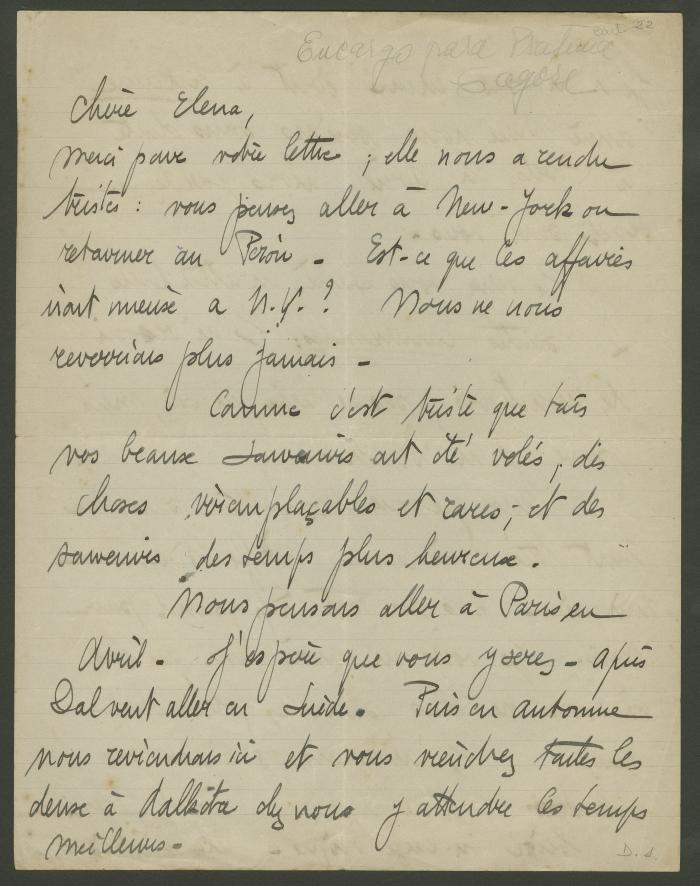 cart 22
Encargo para Pratima
Tagore
Chère Elena,
merci pour votre lettre ; elle nous a rendu
tristes : vous pensez aller à New-York ou
retourner au Pérou - Est-ce que les affaires
iront mieux a N.Y. ? Nous ne nous
reverrions plus jamais -
Comme c'est triste que tous
vos beaux souvenirs ont été volés, des
choses irremplaçables et rares ; et des
souvenirs des temps plus heureux.
Nous pensons aller à Paris en
Avril - J'espère que vous y serez - après
Dal veut aller en Suède. Puis en automne
nous reviendrons ici et vous viendrez toutes les
deux à Kalkota chez nous y attendre les temps
meilleurs -
D. 1